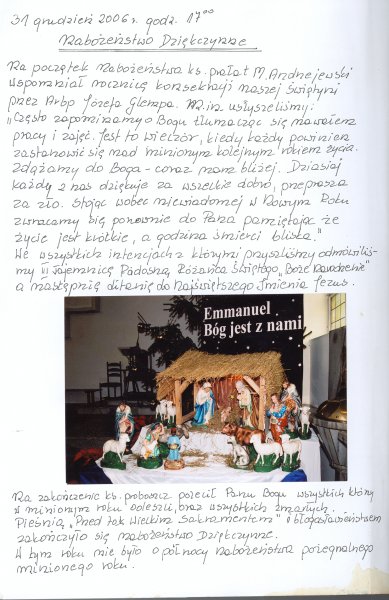 31 grudzień 2006 r. godz. 17⁰⁰
Nabożeństwo Dziękczynne
Na początek nabożeństwa ks. prałat M. Andrzejewski
wspomniał rocznicę konsekracji naszej świątyni
przez Arbp Józefa Glempa. M.in. usłyszeliśmy:
"Często zapominamy o Bogu tłumacząc się nawałem
pracy i zajęć. Jest to wieczór, kiedy każdy powinien
zastanowić się nad minionym kolejnym rokiem życia.
Zdążamy do Boga - coraz nam bliżej. Dzisiaj
każdy z nas dziękuje za wszelkie dobro, przeprasza
za zło. Stojąc wobec niewiadomej w Nowym Roku
zwracamy się ponownie do Pana pamiętając że
życie jest krótkie, a godzina śmierci bliska."
We wszystkich intencjach z którymi przyszliśmy odmówiliś-
my II tajemnicę Radosną, Różańca Świętego, "Boże Narodzenie"
a następnie litanię do Najświętszego Imienia Jezus.
Emmanuel
Bóg jest z nami
Na zakończenie ks. proboszcz polecił Panu Bogu wszystkich którzy
w minionym roku odeszli, oraz wszystkich zmarłych.
Pieśnią "Przed tak Wielkim Sakramentem" i błogosławieństwem
zakończyło się nabożeństwo Dziękczynne.
W tym roku nie było o północy nabożeństwa pożegnalnego
minionego roku.